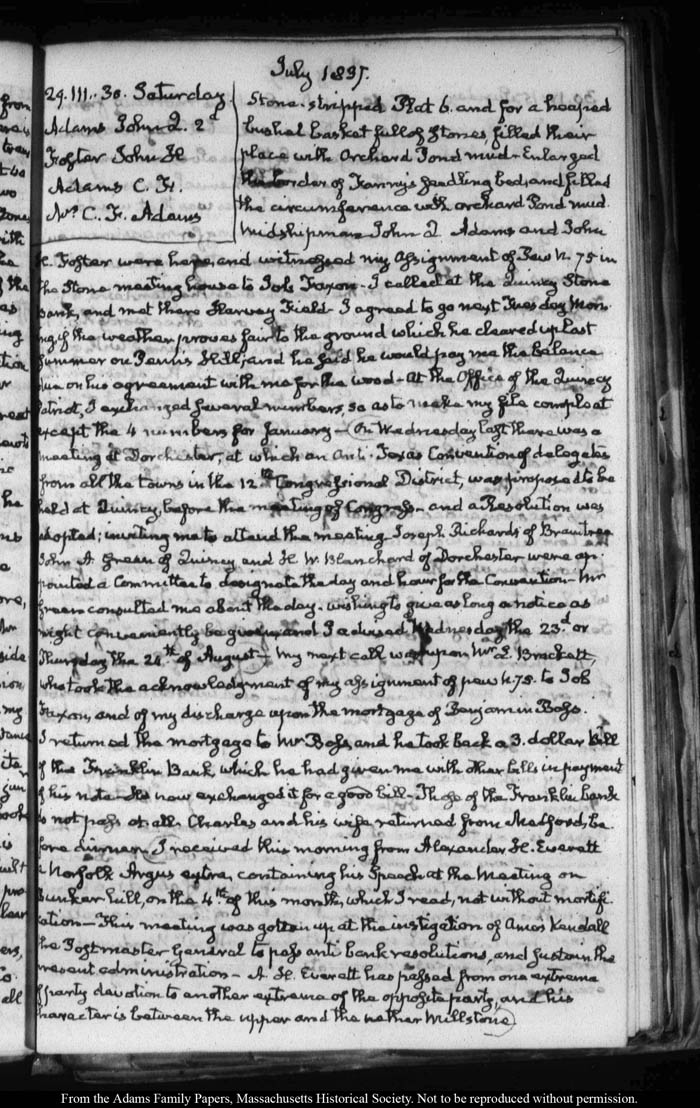 July 1837.
29. III.. 30. Saturday
Adams John Q. 2d
Foster John H
Adams C. F.
Mrs C. F. Adams
Stone. stripped Plat 6. and for a heaped
bushel basket full of stones, filled their
place with Orchard Pond mud - Enlarged
the border of Fanny's seedling bed, and filled
the circumference with orchard Pond mud.
Midshipman John Q. Adams and John
H. Foster were here, and witnessed my assignment of Pew N. 75 in
the Stone meeting house to Job Faxon - I called at the Quincy Stone
Bank, and met there Harvey Field - I agreed to go next Tuesday Morn
ing if the weather proves fair to the ground which he cleared up last
Summer on Penn's Hill; and he said he would pay me the balance
due on his agreement with me for the wood - At the Office of the Quincy
Patriot, I exchanged several numbers, so as to make my file compleat
except the 4 numbers for January - On Wednesday last there was a
meeting at Dorchester, at which an Anti-Texas Convention of delegates
from all the towns in the 12th Congressional District, was proposed to be
held at Quincy, before the meeting of Congress - and a Resolution was
adopted; inviting me to attend the meeting - Joseph Richards of Braintree
John A Green of Quincy and H. W. Blanchard of Dorchester were ap-
pointed a Committee to designate the day and hour for the Convention - Mr
Green consulted me about the day - wishing to give as long a notice as
might conveniently be given, and I advised Wednesday the 23d or
Thursday the 24th of August - My next call was upon Mr L. Brackett,
who took the acknowledgment of my assignment of pew N. 75. to Job
Faxon, and of my discharge upon the mortgage of Benjamin Bass.
I returned the mortgage to Mr Bass, and he took back a 3. dollar bill
of the Franklin Bank, which he had given me with other bills in payment
of his note - He now exchanged it for a good bill - Those of the Franklin bank
do not pass at all. Charles and his wife returned from Medford, be-
fore dinner. I received this morning from Alexander H. Everett
a Norfolk Argus extra, containing his Speech at the Meeting on
Bunker hill, on the 4th of this month, which I read, not without mortifi-
cation - This meeting was gotten up at the instigation of Amos Kendall
the Postmaster General to pass anti bank resolutions, and sustain the
present administration - A H. Everett has passed from one extreme
of party devotion to another extreme of the opposite party, and his
character is between the upper and the nether Millstone
From the Adams Family Papers, Massachusetts Historical Society. Not to be reproduced without permission.